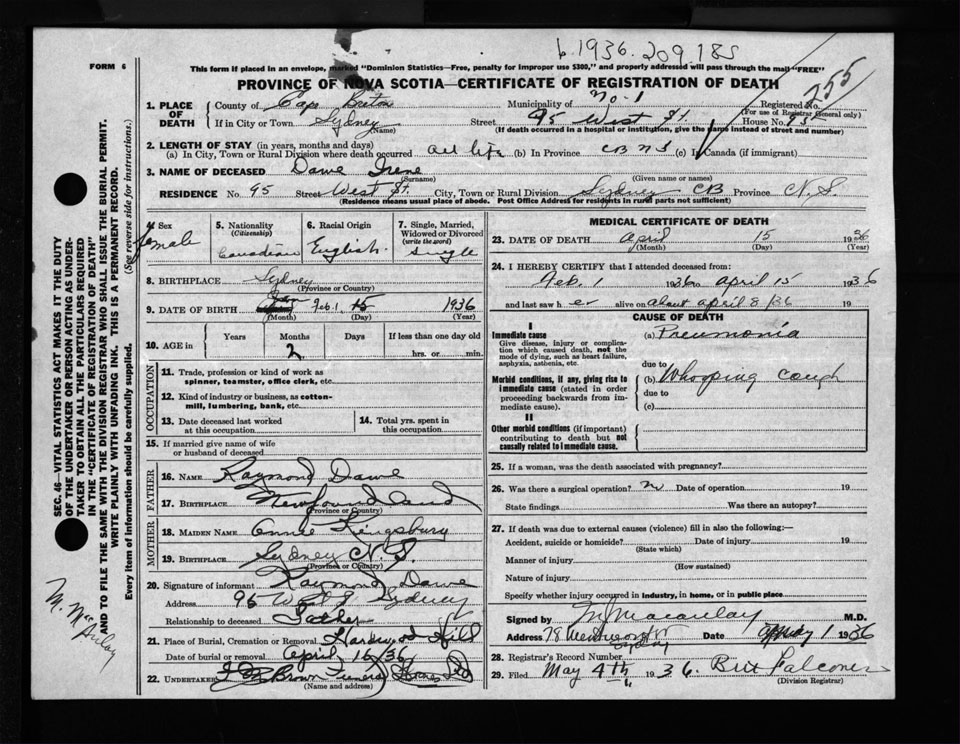 1936. 209 185
FORM 6
This form if placed in an envelope, marked "Dominion Statistics—Free, penalty for improper use $300," and properly addressed will pass through the mail "FREE"
PROVINCE OF NOVA SCOTIA—CERTIFICATE OF REGISTRATION OF DEATH
255
1. PLACE OF DEATH
County of Cape Breton Municipality of No. 1 Registered No.
(For use of Registrar General only)
If in City or Town Sydney Street 95 West St. House No. 95
(Name) (If death occurred in a hospital or institution, give the name instead of street and number)
2. LENGTH OF STAY (in years, months and days)
(a) In City, Town or Rural Division where death occurred all life (b) In Province CB NS (c) In Canada (if immigrant)
3. NAME OF DECEASED Dawe Irene
(Surname) (Given name or names)
RESIDENCE No. 95 Street West St. City, Town or Rural Division Sydney CB Province N.S.
(Residence means usual place of abode. Post Office Address for residents in rural parts not sufficient)
4. Sex
female
5. Nationality
(Citizenship)
Canadian
6. Racial Origin
English.
7. Single, Married, Widowed or Divorced
(write the word)
single
8. BIRTHPLACE Sydney
(Province or Country)
9. DATE OF BIRTH Feb. 1 15 1936
(Month) (Day) (Year)
10. AGE in
Years Months Days If less than one day old
2 hrs. or min.
OCCUPATION
11. Trade, profession or kind of work as
spinner, teamster, office clerk, etc.
12. Kind of industry or business, as cotton-
mill, lumbering, bank, etc.
13. Date deceased last worked
at this occupation
14. Total yrs. spent in
this occupation
15. If married give name of wife
or husband of deceased
FATHER
16. NAME Raymond Dawe
17. BIRTHPLACE Newfoundland
(Province or Country)
MOTHER
18. MAIDEN NAME Annie Kingsbury
19. BIRTHPLACE Sydney N.S.
(Province or Country)
20. Signature of informant Raymond Dawe
Address 95 West St Sydney
Relationship to deceased Father
21. Place of Burial, Cremation or Removal Hardwood Hill
Date of burial or removal April 15/36
22. UNDERTAKER Brown Funeral Home Ltd
(Name and address)
MEDICAL CERTIFICATE OF DEATH
23. DATE OF DEATH April 15 1936
(Month) (Day) (Year)
24. I HEREBY CERTIFY that I attended deceased from:
Feb. 1 1936 to April 15 1936
and last saw h er alive on about April 8/36 19
CAUSE OF DEATH
I
Immediate cause
Give disease, injury or complica-
tion which caused death, not the
mode of dying, such as heart failure,
asphyxia, asthenia, etc.
(a) Pneumonia
due to
Morbid conditions, if any, giving rise to
immediate cause (stated in order
proceeding backwards from im-
mediate cause).
(b) Whooping cough
due to
(c)
II
Other morbid conditions (if important)
contributing to death but not
causally related to immediate cause.
25. If a woman, was the death associated with pregnancy?
26. Was there a surgical operation? no Date of operation 19
State findings Was there an autopsy?
27. If death was due to external causes (violence) fill in also the following:—
Accident, suicide or homicide? Date of injury 19
(State which)
Manner of injury
(How sustained)
Nature of injury
Specify whether injury occurred in industry, in home, or in public place
Signed by Macaulay M.D.
Address Sydney Date May 1 1936
28. Registrar's Record Number
29. Filed May 4th 1936. Falconer
(Division Registrar)
SEC. 46—VITAL STATISTICS ACT MAKES IT THE DUTY
OF THE UNDERTAKER OR PERSON ACTING AS UNDER-
TAKER TO OBTAIN ALL THE PARTICULARS REQUIRED
IN THE "CERTIFICATE OF REGISTRATION OF DEATH"
AND TO FILE THE SAME WITH THE DIVISION REGISTRAR WHO SHALL ISSUE THE BURIAL PERMIT.
WRITE PLAINLY WITH UNFADING INK. THIS IS A PERMANENT RECORD.
Every item of information should be carefully supplied. (See reverse side for instructions.)